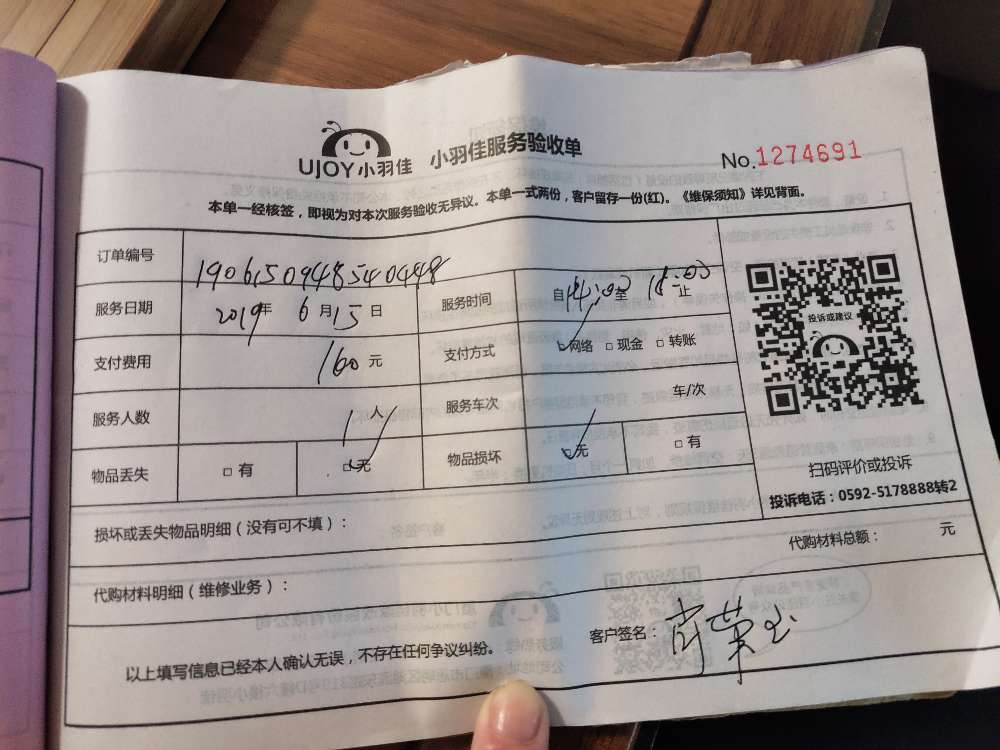 UJOY小羽佳 小羽佳服务验收单
No.1274691
本单一经核签，即视为对本次服务验收无异议。本单一式两份，客户留存一份(红)。《维保须知》详见背面。
订单编号 19061509485540448
服务日期 2019年 6月15日 服务时间 自14:02至18:03止
支付费用 160元 支付方式 网络 现金 转账
服务人数 1人 服务车次 车/次
物品丢失 有 无 物品损坏 无 有
投诉或建议
扫码评价或投诉
投诉电话：0592-5178888转2
损坏或丢失物品明细（没有可不填）：
代购材料明细（维修业务）： 代购材料总额： 元
以上填写信息已经本人确认无误，不存在任何争议纠纷。 客户签名：